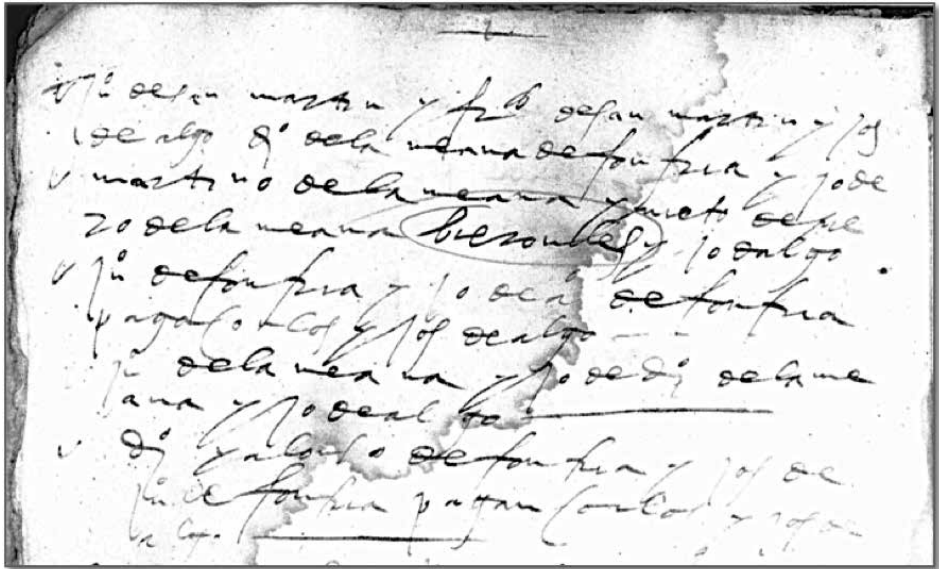 Ju de san martin y frco de san martin y yjos
de algo di de la meana de fonfria y yo de
martino de la meana y nieto de pe
ro de la meana brezonlles y yo dalgo
Ju de fonfria y yo de al de fonfria
pagaron los y yjos de algo
Ju de la meana y yo de di de la me
ana y yo de al go
di y alonso de fonfria y yjos de
Ju de fonfria pagan con los y yjos de
algo